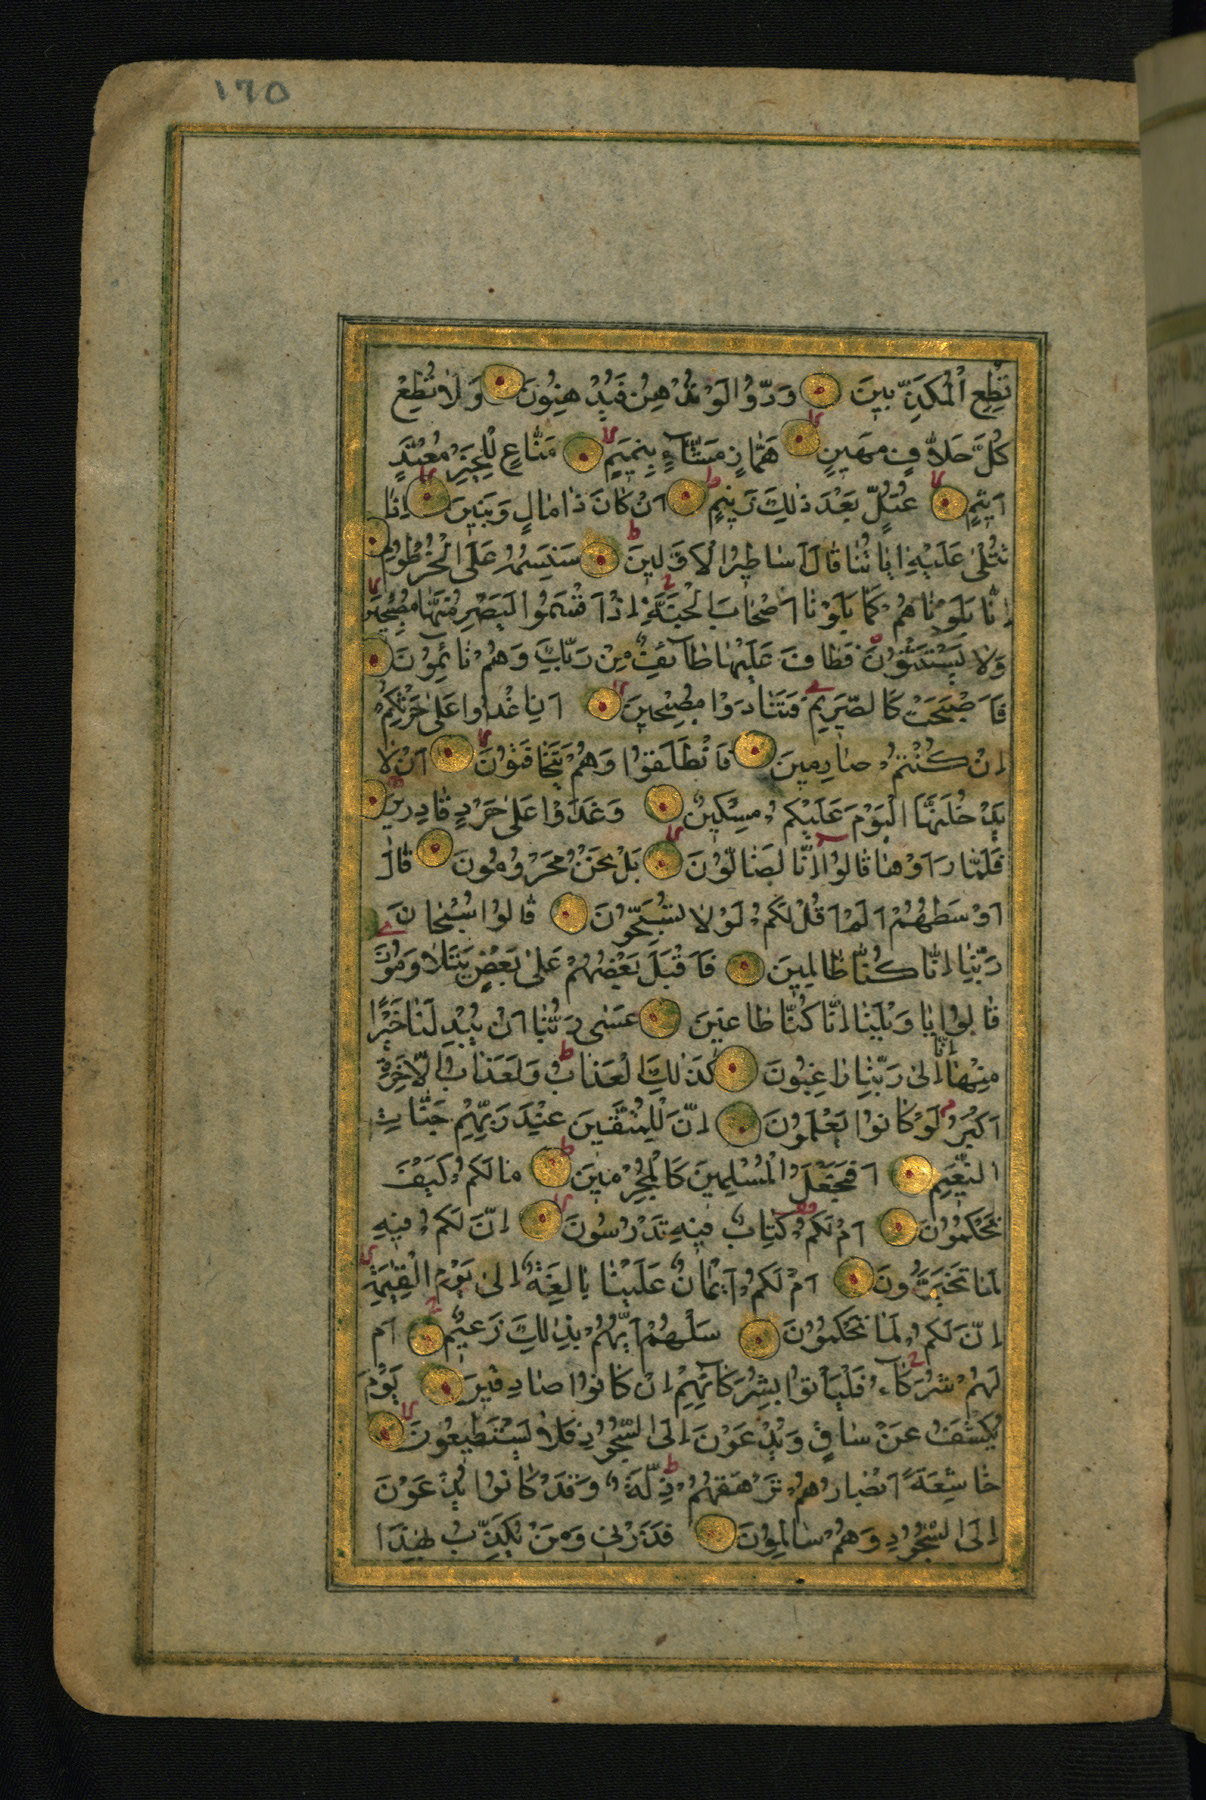 ١٦٥
تُطِعِ الْمُكَذِّبينَ وَدُّوا لَوْ تُدْهِنُ فَيُدْهِنُونَ وَلَا تُطِعْ
كُلَّ حَلَّافٍ مَهينٍ هَمَّازٍ مَشَّآءٍ بِنَميمٍ مَنَّاعٍ لِلْخَيْرِ مُعْتَدٍ
اَثيمٍ عُتُلٍّ بَعْدَ ذٰلِكَ زَنيمٍ اَنْ كَانَ ذَا مَالٍ وَبَنينَ اِذَا
تُتْلٰى عَلَيْهِ اٰيَاتُنَا قَالَ اَسَاطيرُ الْاَوَّلينَ سَنَسِمُهُ عَلَى الْخُرْطُومِ
اِنَّا بَلَوْنَاهُمْ كَمَا بَلَوْنَا اَصْحَابَ الْجَنَّةِ اِذْ اَقْسَمُوا لَيَصْرِمُنَّهَا مُصْبِحينَ
وَلَا يَسْتَثْنُونَ فَطَافَ عَلَيْهَا طَآئِفٌ مِنْ رَبِّكَ وَهُمْ نَائِمُونَ
فَاَصْبَحَتْ كَالصَّريمِ فَتَنَادَوْا مُصْبِحينَ اَنِ اغْدُوا عَلٰى حَرْثِكُمْ
اِنْ كُنْتُمْ صَارِمينَ فَانْطَلَقُوا وَهُمْ يَتَخَافَتُونَ اَنْ لَا
يَدْخُلَنَّهَا الْيَوْمَ عَلَيْكُمْ مِسْكينٌ وَغَدَوْا عَلٰى حَرْدٍ قَادِرينَ
فَلَمَّا رَاَوْهَا قَالُوا اِنَّا لَضَالُّونَ بَلْ نَحْنُ مَحْرُومُونَ قَالَ
اَوْسَطُهُمْ اَلَمْ اَقُلْ لَكُمْ لَوْلَا تُسَبِّحُونَ قَالُوا سُبْحَانَ
رَبِّنَا اِنَّا كُنَّا ظَالِمينَ فَاَقْبَلَ بَعْضُهُمْ عَلٰى بَعْضٍ يَتَلَاوَمُونَ
قَالُوا يَا وَيْلَنَا اِنَّا كُنَّا طَاغينَ عَسٰى رَبُّنَا اَنْ يُبْدِلَنَا خَيْرًا
مِنْهَا اِنَّا اِلٰى رَبِّنَا رَاغِبُونَ كَذٰلِكَ الْعَذَابُ وَلَعَذَابُ الْاٰخِرَةِ
اَكْبَرُ لَوْ كَانُوا يَعْلَمُونَ اِنَّ لِلْمُتَّقينَ عِنْدَ رَبِّهِمْ جَنَّاتِ
النَّعيمِ اَفَنَجْعَلُ الْمُسْلِمينَ كَالْمُجْرِمينَ مَا لَكُمْ كَيْفَ
تَحْكُمُونَ اَمْ لَكُمْ كِتَابٌ فيهِ تَدْرُسُونَ اِنَّ لَكُمْ فيهِ
لَمَا تَخَيَّرُونَ اَمْ لَكُمْ اَيْمَانٌ عَلَيْنَا بَالِغَةٌ اِلٰى يَوْمِ الْقِيٰمَةِ
اِنَّ لَكُمْ لَمَا تَحْكُمُونَ سَلْهُمْ اَيُّهُمْ بِذٰلِكَ زَعيمٌ اَمْ
لَهُمْ شُرَكَآءُ فَلْيَأْتُوا بِشُرَكَآئِهِمْ اِنْ كَانُوا صَادِقينَ يَوْمَ
يُكْشَفُ عَنْ سَاقٍ وَيُدْعَوْنَ اِلَى السُّجُودِ فَلَا يَسْتَطيعُونَ
خَاشِعَةً اَبْصَارُهُمْ تَرْهَقُهُمْ ذِلَّةٌ وَقَدْ كَانُوا يُدْعَوْنَ
اِلَى السُّجُودِ وَهُمْ سَالِمُونَ فَذَرْنى وَمَنْ يُكَذِّبُ بِهٰذَا